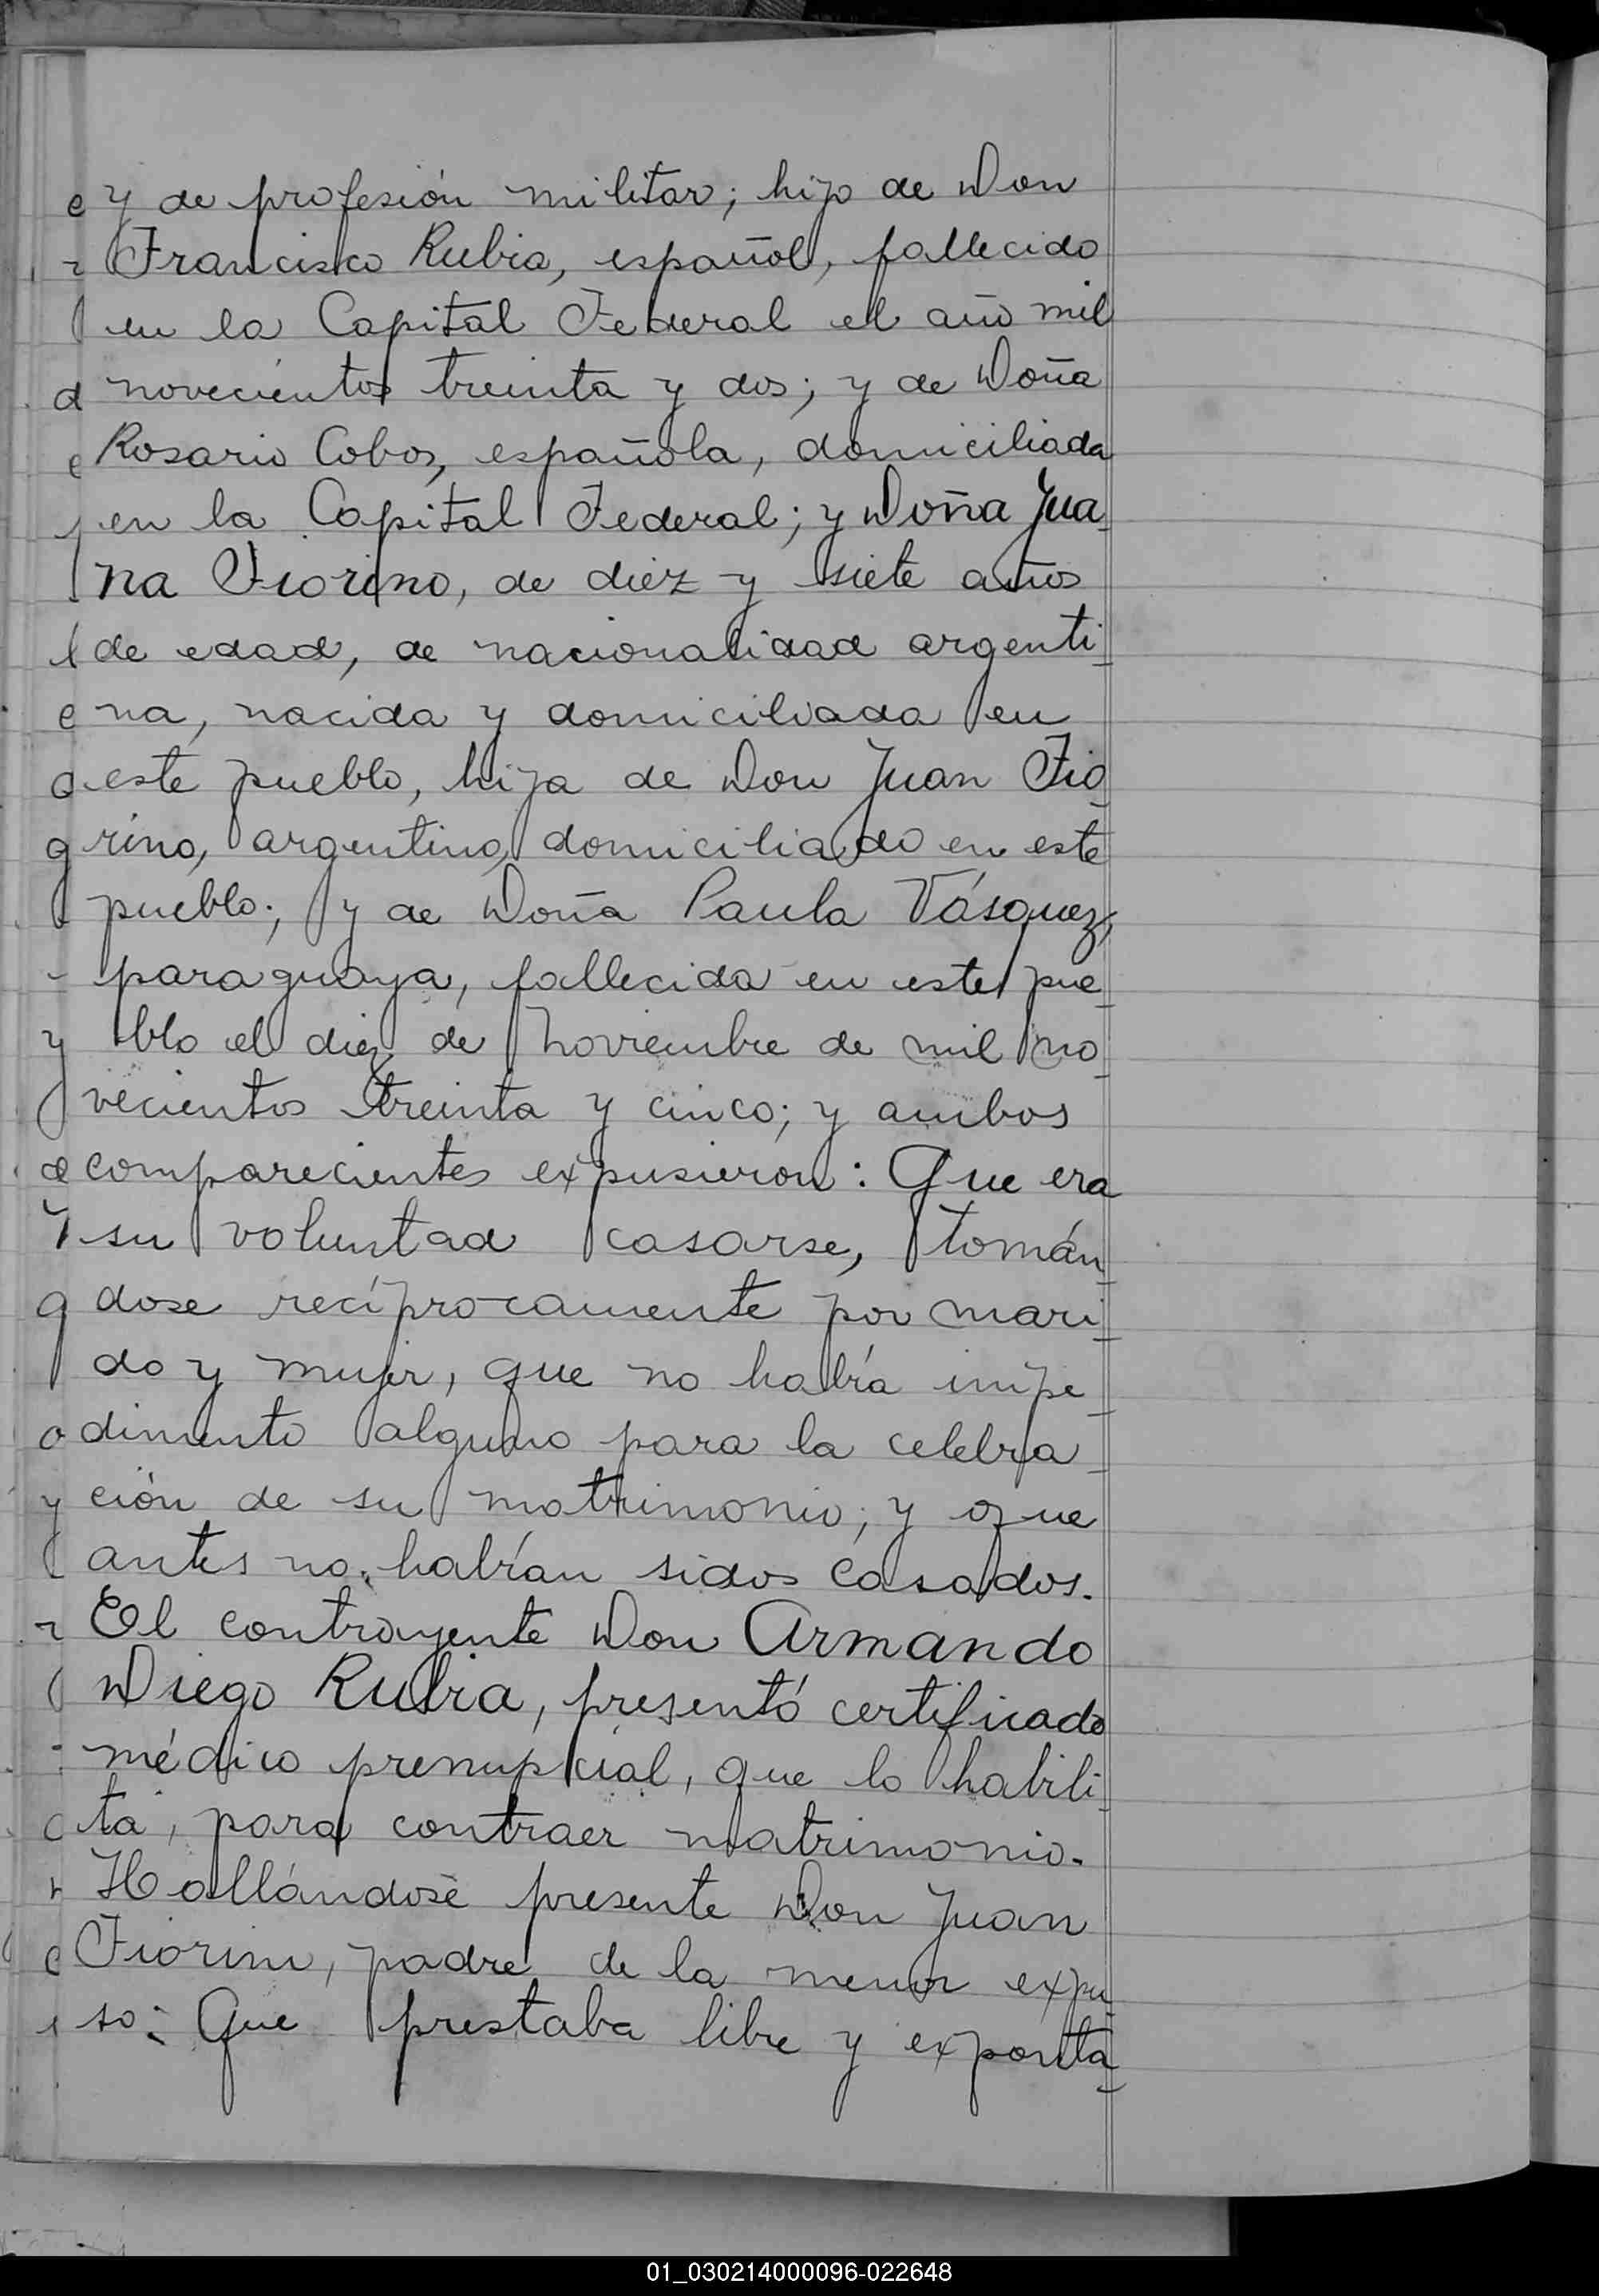 y de profesión militar; hijo de Don
Francisco Rubia, español, fallecido
en la Capital Federal el año mil
novecientos treinta y dos; y de Doña
Rosario Cobos, española, domiciliada
en la Capital Federal; y Doña Jua-
na Fiorino, de diez y siete años
de edad, de nacionalidad argenti-
na, nacida y domiciliada en
este pueblo, hija de Don Juan Fio-
rino, argentino, domiciliado en este
pueblo; y de Doña Paula Vásquez,
paraguaya, fallecida en este pue-
blo el diez de noviembre de mil no-
vecientos treinta y cinco; y ambos
comparecientes expusieron: Que era
su voluntad casarse, tomán-
dose recíprocamente por mari-
do y mujer, que no había impe-
dimento alguno para la celebra-
ción de su matrimonio; y que
antes no habían sidos casados.
El contrayente Don Armando
Diego Rubia, presentó certificado
médico prenupcial, que lo habili-
ta, para contraer matrimonio.
Hallándose presente Don Juan
Fiorino, padre de la menor expu-
so: Que prestaba libre y exponta-
01_030214000096-022648